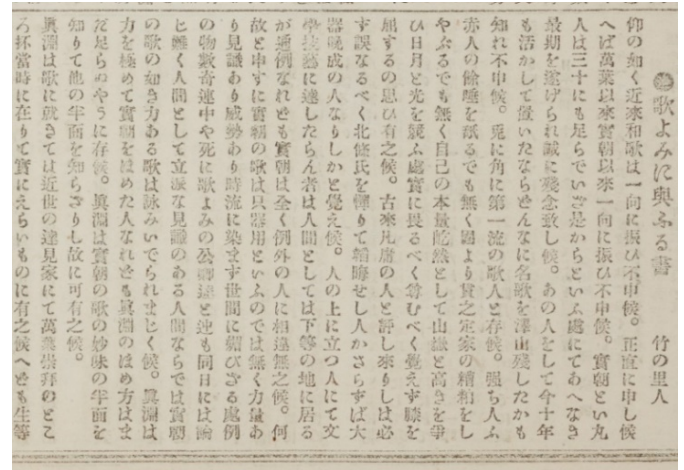 歌よみに與ふる書
竹の里人
仰の如く近來和歌は一向に振ひ不申候。正直に申し候
へば萬葉以來實朝以來一向に振ひ不申候。實朝といふ
人は三十にも足らでいざ是からといふ處にてあへなき
最期を遂げられ誠に殘念致し候。あの人をして今十年
も活かして置いたならどんなに名歌を澤山殘したかも
知れ不申候。兎に角に第一流の歌人と存候。强ち人丸
赤人の餘唾を舐るでも無く固より貫之定家の糟粕をし
やぶるでも無く自己の本領屹然として山嶽と高きを爭
ひ日月と光を競ふ處實に畏るべく尊むべく覺えず膝を
屈するの思ひ有之候。古來凡庸の人と評し來りしは必
ず誤なるべく北條氏を憚りて韜晦せし人かさらずば大
器晩成の人なりしかと覺え候。人の上に立つ人にて文
學技藝に達したらん者は人間としては下等の地に居る
が通例なれども實朝は全く例外の人に相違無之候。何
故と申すに實朝の歌は只器用といふのでは無く力量あ
り見識あり威勢あり時流に染まず世間に媚びざる處例
の物數奇連中や死に歌よみの公卿達と迚も同日には論
じ難く人間として立派な見識のある人間ならでは實朝
の歌の如き力ある歌は詠みいでられまじく候。眞淵は
力を極めて實朝をほめた人なれども眞淵のほめ方はま
だ足らぬやうに存候。眞淵は實朝の歌の妙味の半面を
知りて他の半面を知らざりし故に可有之候。
眞淵は歌に就きては近世の達見家にて萬葉崇拜のとこ
ろ抔當時に在りて實にえらいものに有之候へども生等